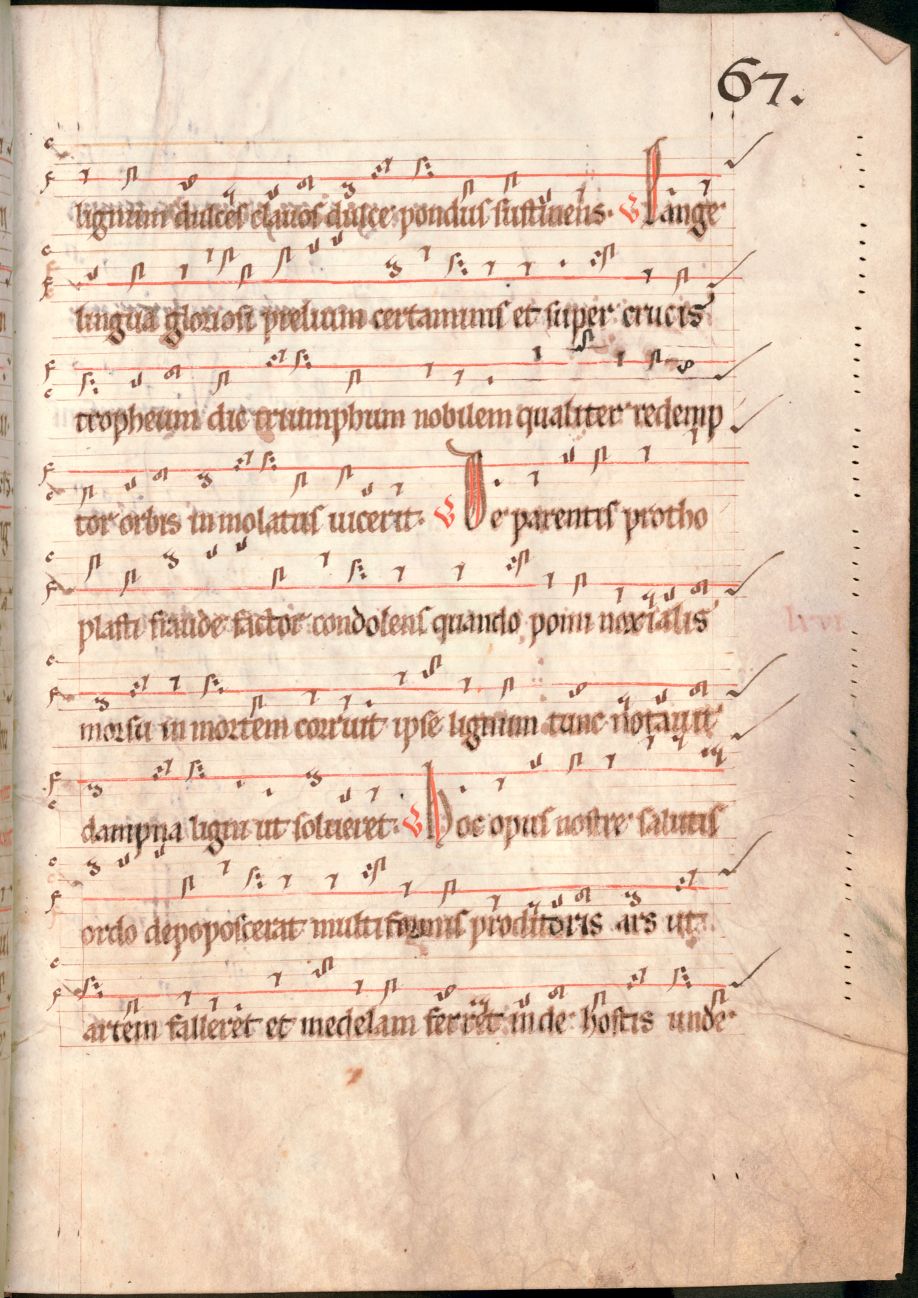 67.
lignum dulces clauos dulce pondus sustinens. V Pange
lingua gloriosi prelium certaminis et super crucis
tropheum dic triumphum nobilem qualiter redemp
tor orbis inmolatus uicerit. V De parentis protho
plasti fraude factor condolens quando pomi noxialis
morsu in mortem corruit ipse lignum tunc notauit
dampna ligni ut solueret. V Hoc opus nostre salutis
ordo depoposcerat multiformis proditoris ars ut
artem falleret et medelam ferret inde hostis unde
lxvi